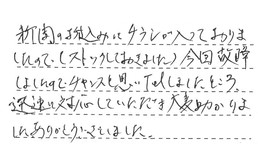 新聞の折込みにチラシが入っておりま
したので、(ストックしておきました) 今回故障
しましたのでチャンスと思いTelしましたところ
迅速に対応していただき大変助かりま
したありがとうございました。